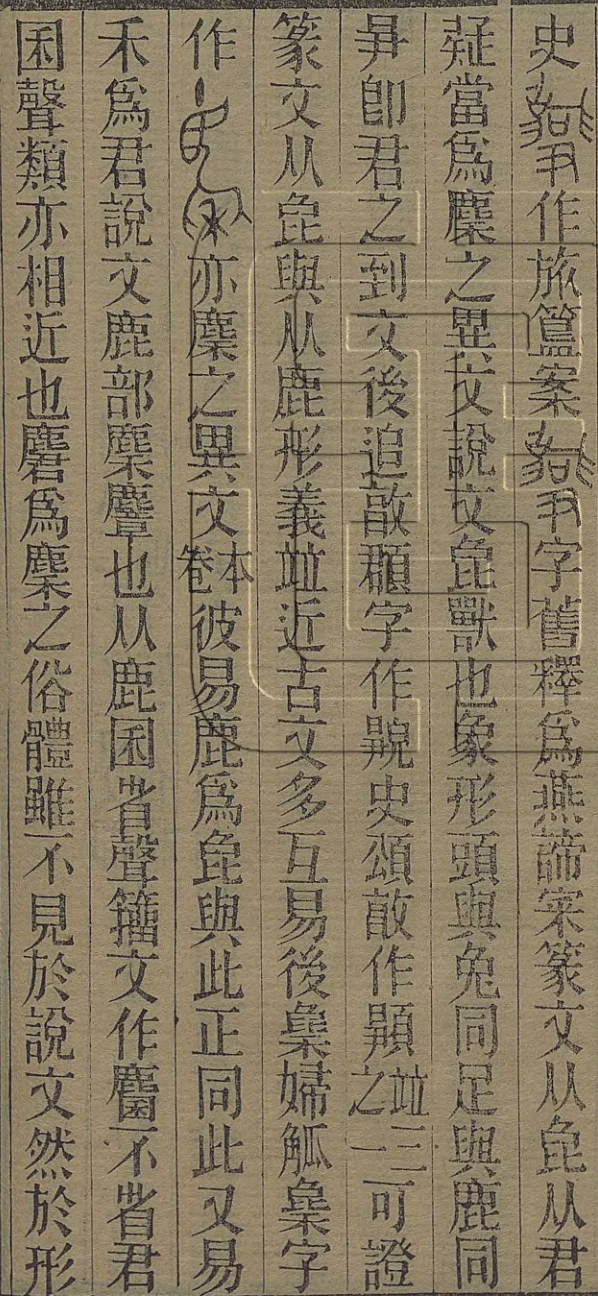 史作旅簠案字舊釋爲燕諦宷篆文从㲋从君
疑當爲麇之異文說文㲋獸也象形頭與兔同足與鹿同
即君之到文後追敦字作史頌敦作竝三之一可證
篆文从㲋與从鹿形義竝近古文多互易後婦觚字
作亦麇之異文本卷彼易鹿爲㲋與此正同此又易
禾爲君說文鹿部麇麞也从鹿囷省聲籒文作麕不省君
囷聲類亦相近也麏爲麇之俗體雖不見於說文然於形